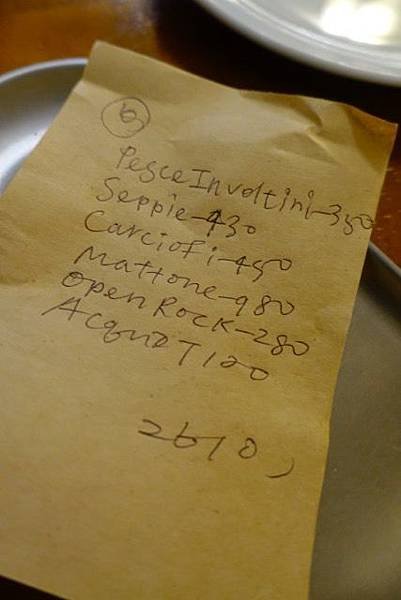 6
Pesce Involtini-350
Seppie-430
Carciofi-450
Mattone-980
Open Rock-280
Acqua T120
2610,